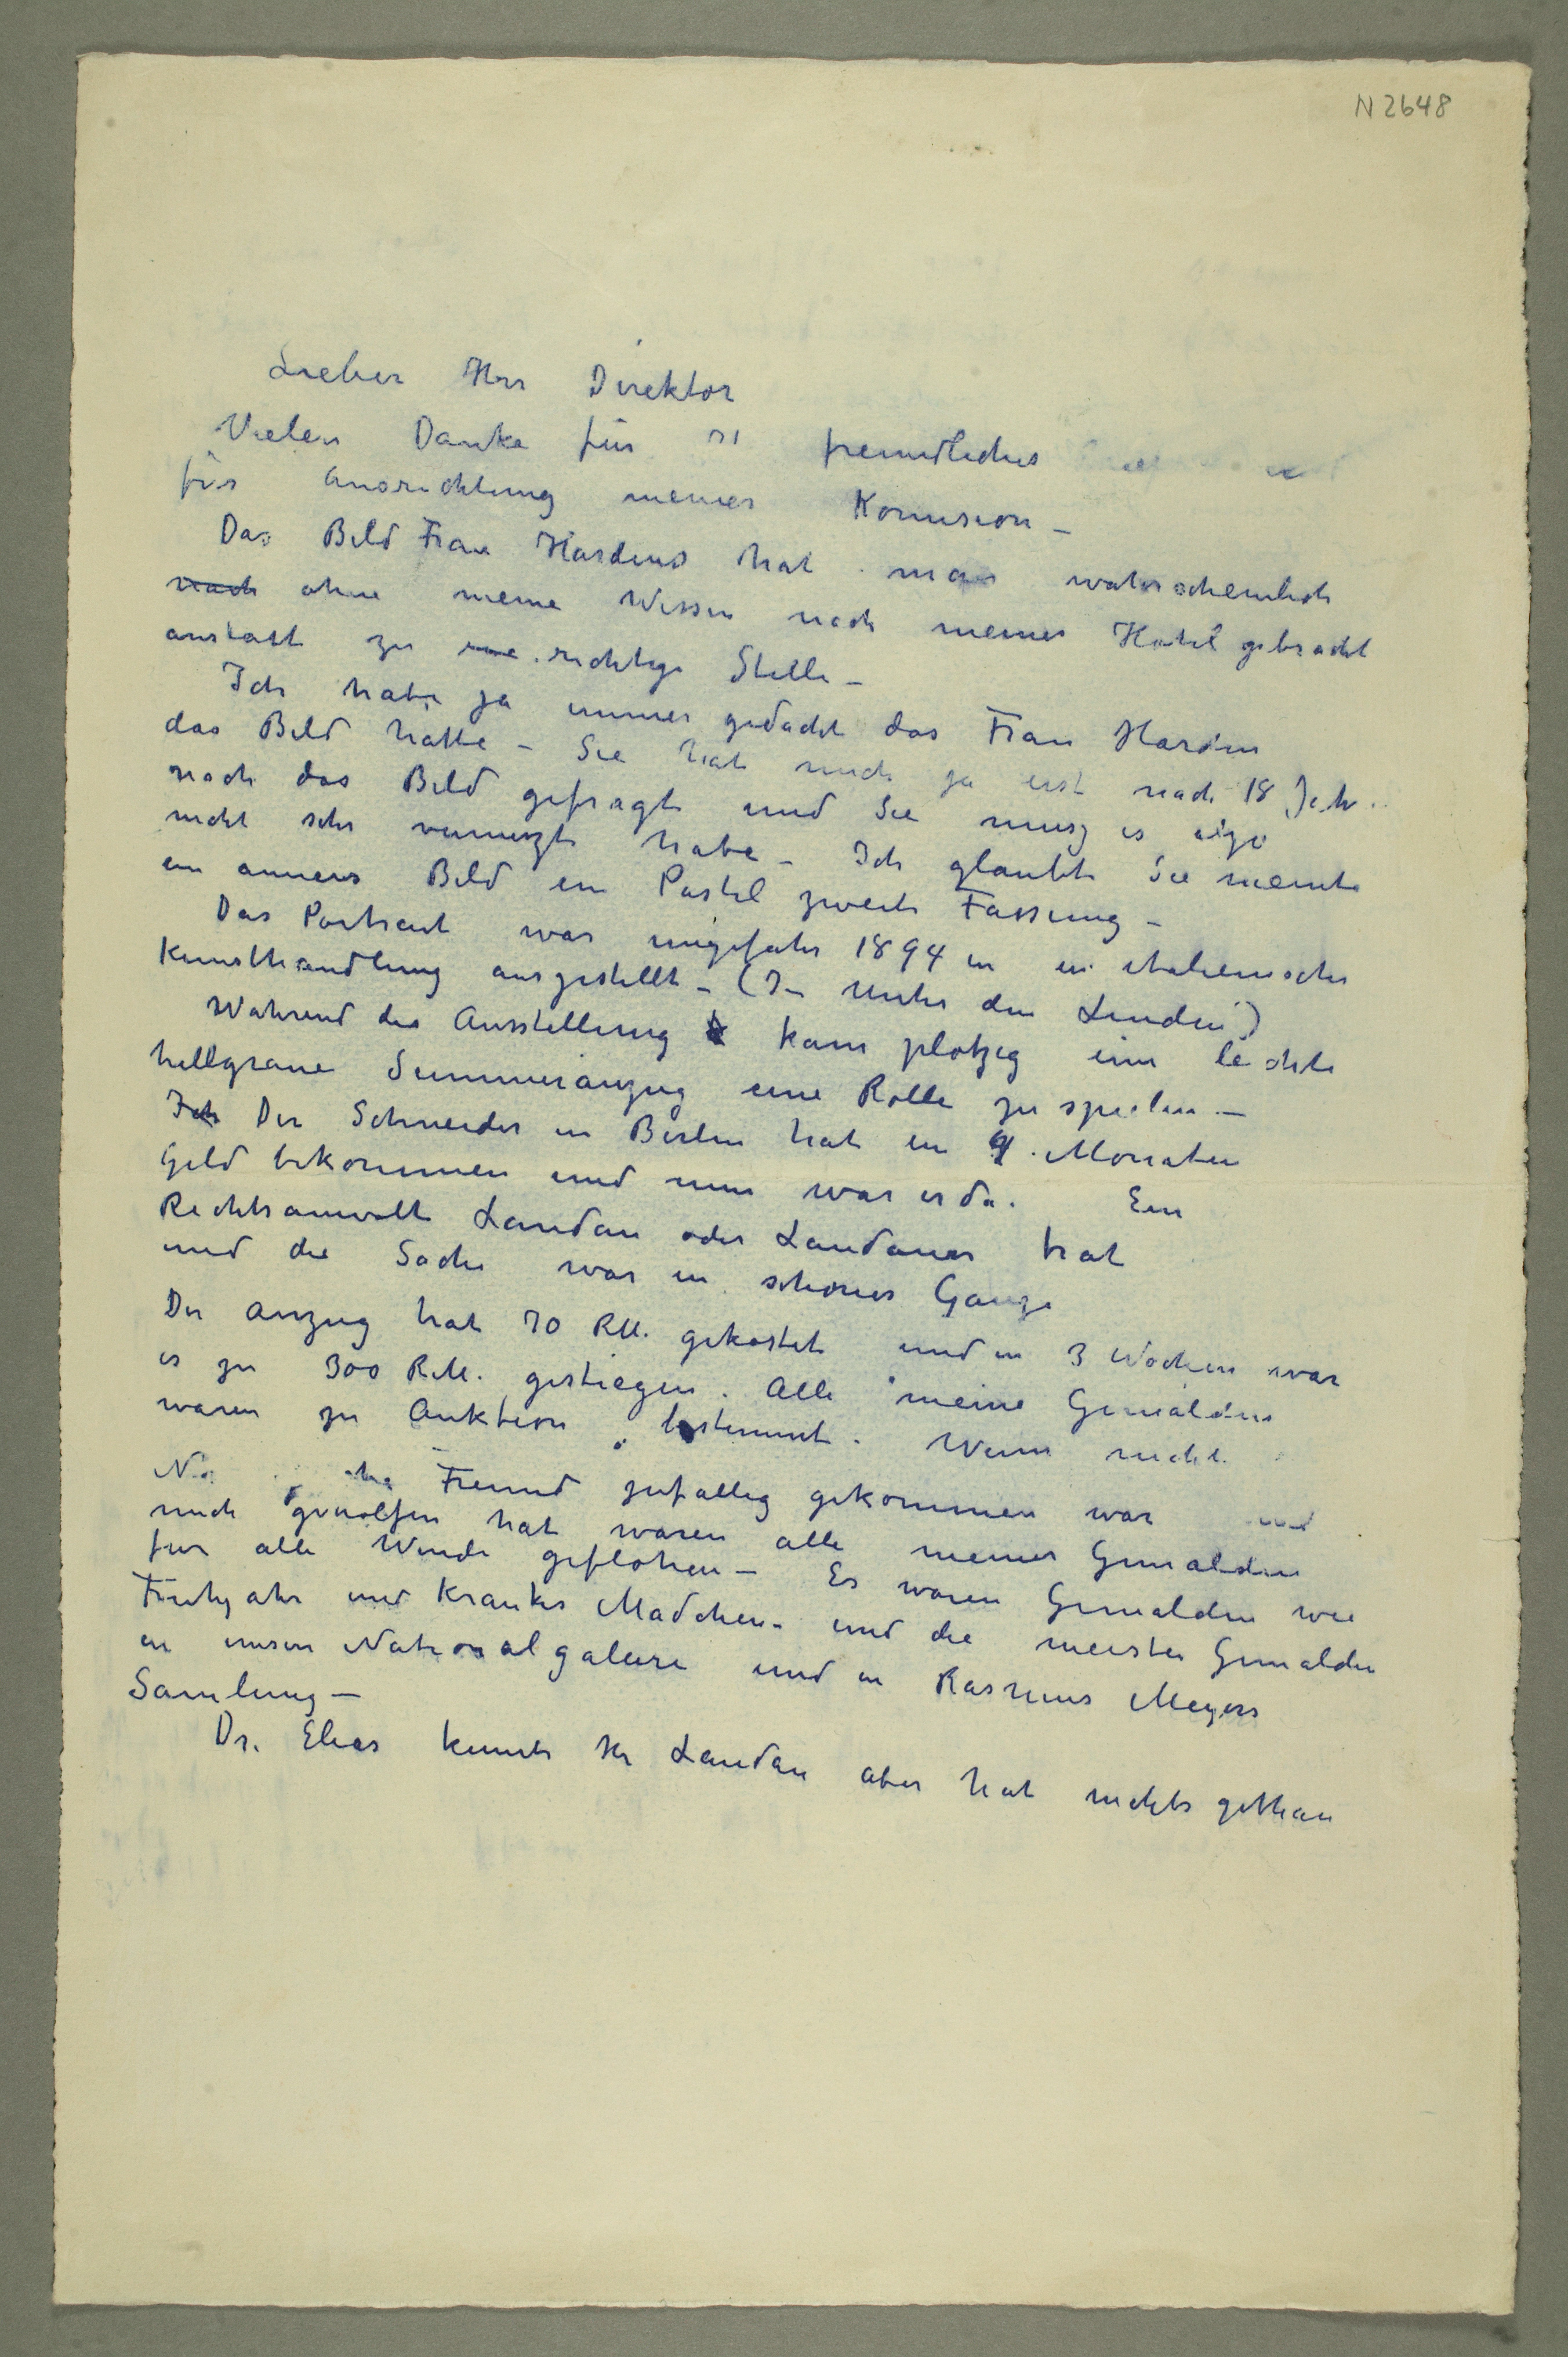 N 2648
Lieber Herr Direktor
Vielen Danke für freundliches
für Ausrichtung meines Komision –
Das Bild Frau Hardens hat man wahrscheinlich
nach ohne meine Wissen nach meines Hotel gebracht
anstatt zu richtige Stelle –
Ich habe ja immer gedacht das Frau Harden
das Bild hatte – Sie hat mich ja erst nach 18 Jah.
nach das Bild gefragt und Sie musz es
nicht sehr vermiszt habe – Ich glaubte Sie meinte
ein anners Bild ein Pastel zweite Fassung –
Das Portrait war ungefahr 1894 in italienische
Kunsthandlung ausgestellt – (In Unter den Linden)
Wahrend die Ausstellung kam plotzig ein leichte
hellgraue Summeranzug eine Rolle zu spielen –
Ich Der Schneider in Berlin hat in 9. Monaten
Geld bekommen und nun war er da. Ein
Rechtsanwalt Landau oder Landauer trat
und die Sache war in schönes Gange
Der Anzug hat 70 RM. gekostet und in 3 Wochen war
es zu 300 RM. gestiegen. Alle meine Gemälden
waren zu Auktion bestimmt. Wenn nicht
Freund zufallig gekommen war und
mich geholfen hat waren alle meines Gemalden
fur alle Winde geflohen – Es waren Gemalden wie
Fruhjahr und Krankes Madchen – und die meisten Gemalden
in unsere Nationalgalerie und in Rasmus Meyers
Samlung –
Dr. Elias kennte Hr Landau aber hat nichts gethan